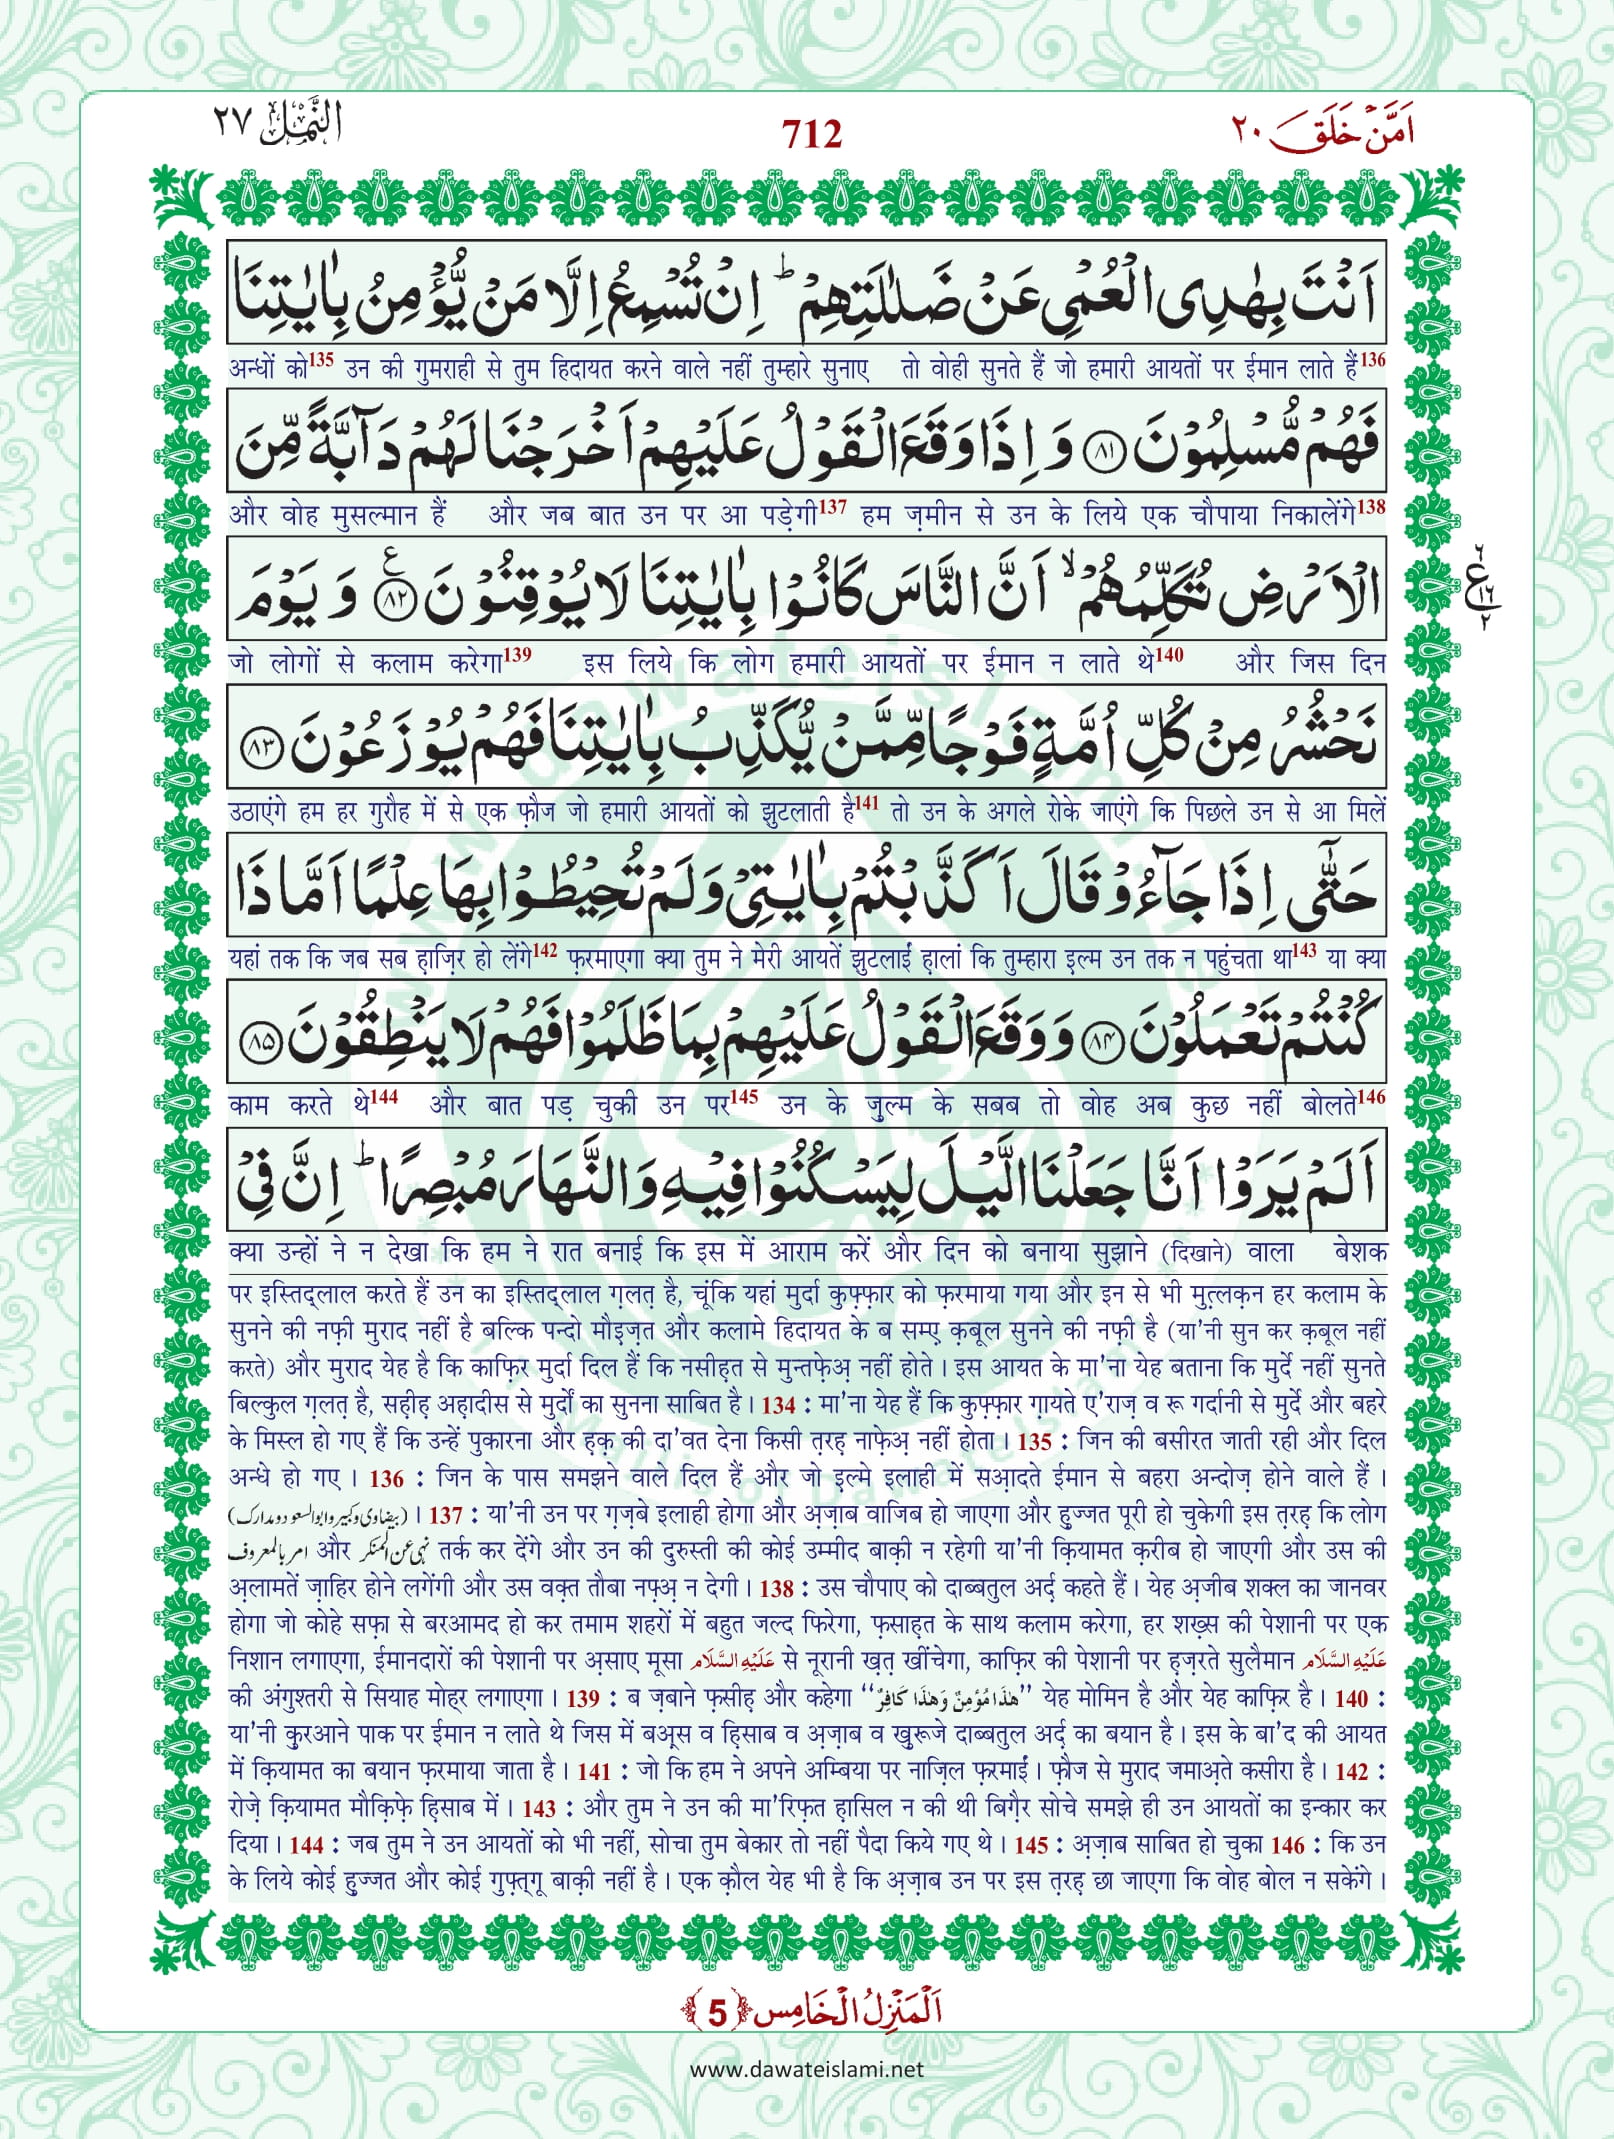 اَمَّنْ خَلَقَ ٢٠
712
النَّمْل ٢٧
اَنْتَ بِهٰدِی الْعُمْیِ عَنْ ضَلٰلَتِهِمْ ؕ اِنْ تُسْمِعُ اِلَّا مَنْ یُّؤْمِنُ بِاٰیٰتِنَا
अन्धों को135 उन की गुमराही से तुम हिदायत करने वाले नहीं तुम्हारे सुनाए तो वोही सुनते हैं जो हमारी आयतों पर ईमान लाते हैं136
فَهُمْ مُّسْلِمُوْنَ ﴿۸۱﴾ وَ اِذَا وَقَعَ الْقَوْلُ عَلَیْهِمْ اَخْرَجْنَا لَهُمْ دَآبَّةً مِّنَ
और वोह मुसल्मान हैं और जब बात उन पर आ पड़ेगी137 हम ज़मीन से उन के लिये एक चौपाया निकालेंगे138
الْاَرْضِ تُكَلِّمُهُمْ ۙ اَنَّ النَّاسَ كَانُوْا بِاٰیٰتِنَا لَا یُوْقِنُوْنَ ﴿۸۲﴾ ع وَ یَوْمَ
٦ ع ١٦ ٢
जो लोगों से कलाम करेगा139 इस लिये कि लोग हमारी आयतों पर ईमान न लाते थे140 और जिस दिन
نَحْشُرُ مِنْ كُلِّ اُمَّةٍ فَوْجًا مِّمَّنْ یُّكَذِّبُ بِاٰیٰتِنَا فَهُمْ یُوْزَعُوْنَ ﴿۸۳﴾
उठाएंगे हम हर गुरौह में से एक फ़ौज जो हमारी आयतों को झुटलाती है141 तो उन के अगले रोके जाएंगे कि पिछले उन से आ मिलें
حَتّٰۤى اِذَا جَآءُوْ قَالَ اَكَذَّبْتُمْ بِاٰیٰتِیْ وَ لَمْ تُحِیْطُوْا بِهَا عِلْمًا اَمَّا ذَا
यहां तक कि जब सब ह़ाज़िर हो लेंगे142 फ़रमाएगा क्या तुम ने मेरी आयतें झुटलाईं ह़ालां कि तुम्हारा इल्म उन तक न पहुंचता था143 या क्या
كُنْتُمْ تَعْمَلُوْنَ ﴿۸۴﴾ وَ وَقَعَ الْقَوْلُ عَلَیْهِمْ بِمَا ظَلَمُوْا فَهُمْ لَا یَنْطِقُوْنَ ﴿۸۵﴾
काम करते थे144 और बात पड़ चुकी उन पर145 उन के ज़ुल्म के सबब तो वोह अब कुछ नहीं बोलते146
اَلَمْ یَرَوْا اَنَّا جَعَلْنَا الَّیْلَ لِیَسْكُنُوْا فِیْهِ وَ النَّهَارَ مُبْصِرًا ؕ اِنَّ فِیْ
क्या उन्हों ने न देखा कि हम ने रात बनाई कि इस में आराम करें और दिन को बनाया सुझाने (दिखाने) वाला बेशक
पर इस्तिद्लाल करते हैं उन का इस्तिद्लाल ग़लत़ है, चूंकि यहां मुर्दा कुफ़्फ़ार को फ़रमाया गया और इन से भी मुत़्लक़न हर कलाम के
सुनने की नफ़ी मुराद नहीं है बल्कि पन्दो मौइज़त और कलामे हिदायत के ब सम्ए क़बूल सुनने की नफ़ी है (या'नी सुन कर क़बूल नहीं
करते) और मुराद येह है कि काफ़िर मुर्दा दिल हैं कि नसीह़त से मुन्तफ़ेअ़ नहीं होते। इस आयत के मा'ना येह बताना कि मुर्दे नहीं सुनते
बिल्कुल ग़लत़ है, सह़ीह़ अह़ादीस से मुर्दों का सुनना साबित है। 134 : मा'ना येह हैं कि कुफ़्फ़ार ग़ायते ए'राज़ व रू गर्दानी से मुर्दे और बहरे
के मिस्ल हो गए हैं कि उन्हें पुकारना और ह़क़ की दा'वत देना किसी त़रह़ नाफ़ेअ़ नहीं होता। 135 : जिन की बसीरत जाती रही और दिल
अन्धे हो गए। 136 : जिन के पास समझने वाले दिल हैं और जो इल्मे इलाही में सआ़दते ईमान से बहरा अन्दोज़ होने वाले हैं।
(بیضاوی وکبیر وابوالسعود ومدارک)। 137 : या'नी उन पर ग़ज़बे इलाही होगा और अ़ज़ाब वाजिब हो जाएगा और ह़ुज्जत पूरी हो चुकेगी इस त़रह़ कि लोग
امر بالمعروف और نہی عن المنکر तर्क कर देंगे और उन की दुरुस्ती की कोई उम्मीद बाक़ी न रहेगी या'नी क़ियामत क़रीब हो जाएगी और उस की
अ़लामतें ज़ाहिर होने लगेंगी और उस वक़्त तौबा नफ़्अ़ न देगी। 138 : उस चौपाए को दाब्बतुल अर्द़ कहते हैं। येह अ़जीब शक्ल का जानवर
होगा जो कोहे सफ़ा से बरआमद हो कर तमाम शहरों में बहुत जल्द फिरेगा, फ़साह़त के साथ कलाम करेगा, हर शख़्स की पेशानी पर एक
निशान लगाएगा, ईमानदारों की पेशानी पर अ़साए मूसा عَلَیْهِ السَّلَام से नूरानी ख़त़ खींचेगा, काफ़िर की पेशानी पर ह़ज़रते सुलैमान عَلَیْهِ السَّلَام
की अंगुश्तरी से सियाह मोह्र लगाएगा। 139 : ब ज़बाने फ़सीह़ और कहेगा ‘‘هٰذَا مُؤْمِنٌ وَ هٰذَا كَافِرٌ’’ येह मोमिन है और येह काफ़िर है। 140 :
या'नी क़ुरआने पाक पर ईमान न लाते थे जिस में बअ़्स व ह़िसाब व अ़ज़ाब व ख़ुरूजे दाब्बतुल अर्द़ का बयान है। इस के बा'द की आयत
में क़ियामत का बयान फ़रमाया जाता है। 141 : जो कि हम ने अपने अम्बिया पर नाज़िल फ़रमाईं। फ़ौज से मुराद जमाअ़ते कसीरा है। 142 :
रोज़े क़ियामत मौक़िफ़े ह़िसाब में। 143 : और तुम ने उन की मा'रिफ़त ह़ासिल न की थी बिग़ैर सोचे समझे ही उन आयतों का इन्कार कर
दिया। 144 : जब तुम ने उन आयतों को भी नहीं, सोचा तुम बेकार तो नहीं पैदा किये गए थे। 145 : अ़ज़ाब साबित हो चुका 146 : कि उन
के लिये कोई ह़ुज्जत और कोई गुफ़्त्गू बाक़ी नहीं है। एक क़ौल येह भी है कि अ़ज़ाब उन पर इस त़रह़ छा जाएगा कि वोह बोल न सकेंगे।
اَلْمَنْزِلُ الْخَامِس ﴿5﴾
www.dawateislami.net